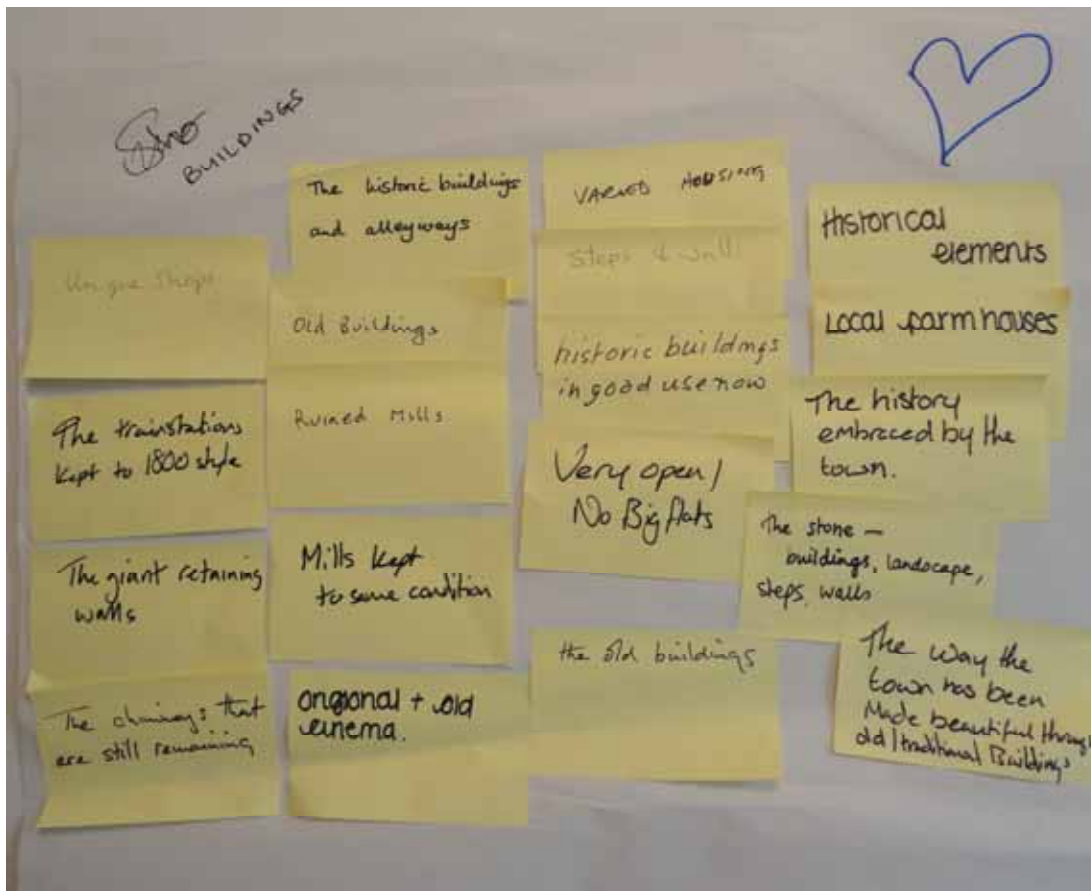 BUILDINGS
Unique shops
The trainstations
kept to 1800 style
The giant retaining
walls
The chimneys that
are still remaining
The historic buildings
and alleyways
Old Buildings
Ruined Mills
Mills kept
to same condition
original + old
cinema.
VARIED HOUSING
Steps & walls
historic buildings
in good use now
Very open /
No Big flats
the old buildings
Historical
elements
Local farmhouses
The history
embraced by the
town.
The stone –
buildings, landscape,
steps, walls
The way the
town has been
Made beautiful through
old/traditional Buildings